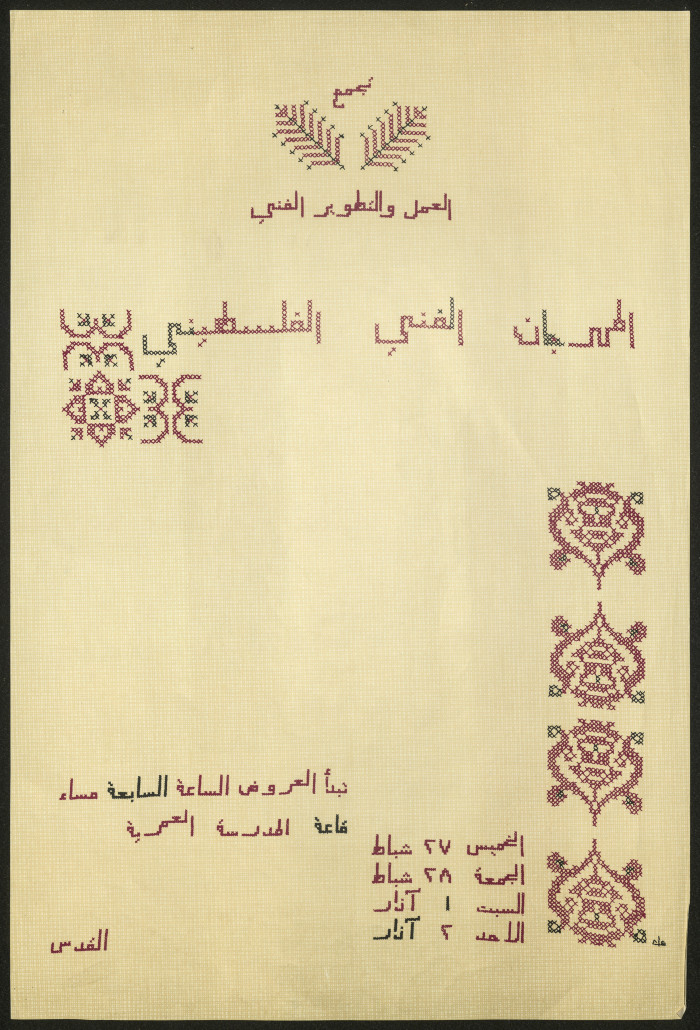 تجمع
العمل والتطوير الفني
المهرجان الفني الفلسطيني
تبدأ العروض الساعة السابعة مساء
قاعة المدرسة العمرية
الخميس ٢٧ شباط
الجمعة ٢٨ شباط
السبت ١ آذار
الأحد ٢ آذار
القدس